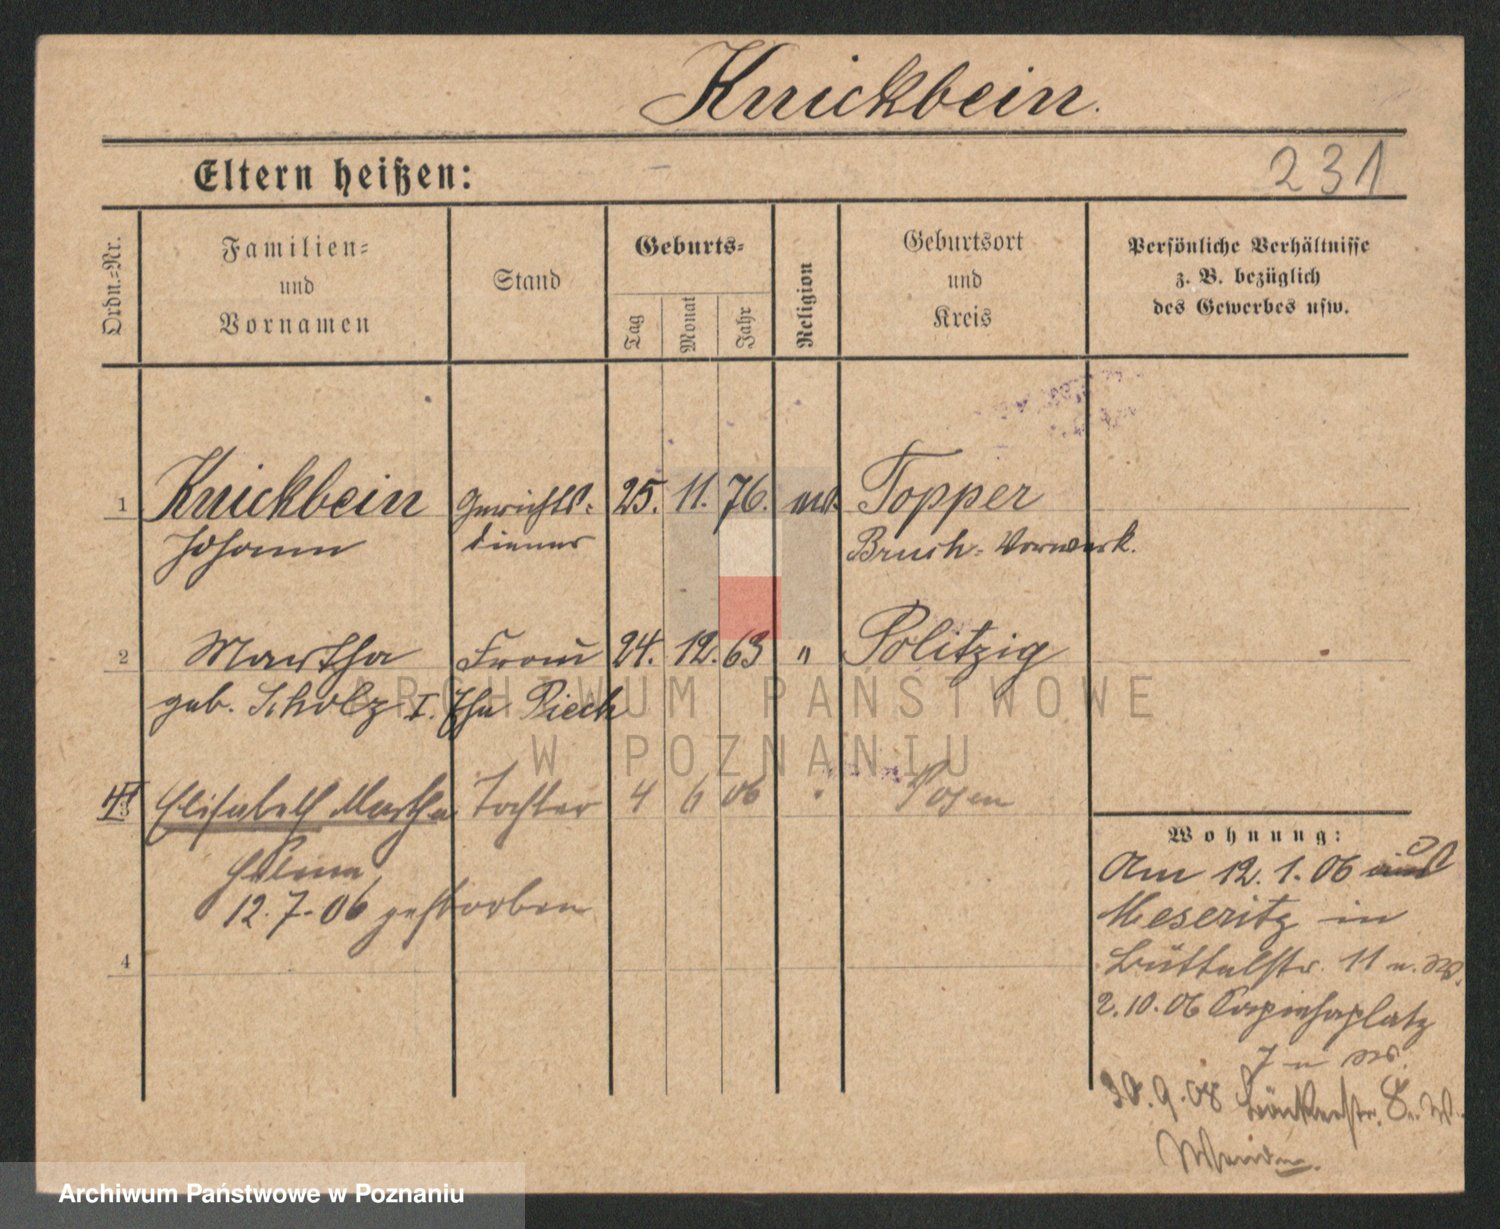 Knickbein.
Eltern heißen: –
231
Ordn.-Nr.
Familien-
und
Vornamen
Stand
Geburts-
Tag
Monat
Jahr
Religion
Geburtsort
und
Kreis
Persönliche Verhältnisse
z. B. bezüglich
des Gewerbes usw.
1 Knickbein Gerichts- 25. 11. 76. Topper
Johann diener Bruch-Vorwerk.
2 Martha Frau 24. 12. 63 " Politzig
geb. Scholz I. Ehe Pieck
3 Elisabeth Martha Tochter 4 6 06 " Posen
Helena
12.7.06 gestorben
4
Wohnung:
Am 12.1.06
Meseritz in
Büttelstr. 11 u.
2.10.06 Sapiehaplatz
7 u
30.9.08 Bäckerstr. 8
ARCHIWUM PAŃSTWOWE
W POZNANIU
Archiwum Państwowe w Poznaniu